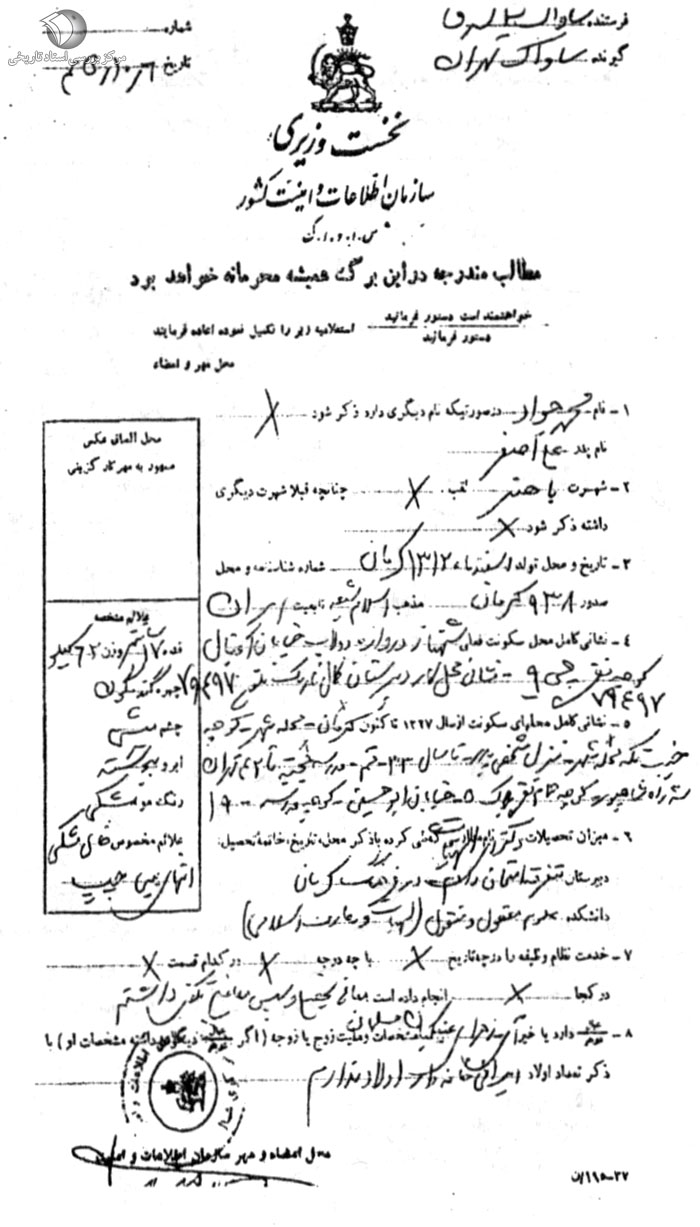 مرکز بررسی اسناد تاریخی
فرستنده ساواک
گیرنده ساواک تهران
شماره
تاریخ
نخست وزیری
سازمان اطلاعات و امنیت کشور
س.ا.و.ا.ک
مطالب مندرجه در این برگ همیشه محرمانه خواهد بود
خواهشمند است دستور فرمائید
دستور فرمائید
استعلامیه زیر را تکمیل نموده اعاده فرمایند
محل مهر و امضاء
محل الصاق عکس
ممهور به مهر کارگزینی
۱ - نام محمد جواد در صورتیکه نام دیگری دارد ذکر شود X
نام پدر علی اصغر
۲ - شهرت باهنر لقب X چنانچه قبلا شهرت دیگری
داشته ذکر شود X
۳ - تاریخ و محل تولد اسفندماه ۱۳۱۲ کرمان شماره شناسنامه و محل
صدور ۹۳۸ کرمان مذهب اسلام شیعه تابعیت ایران
۴ - نشانی کامل محل سکونت فعلی شهناز دروازه دولاب خیابان
کوچه نقی - نشانی محل کار دبیرستان کمال نارمک تلفن ۷۹۴۹۷
۷۹۴۹۷
۵ - نشانی کامل محلهای سکونت از سال ۱۳۲۷ تا کنون کرمان - محله شهر - کوچه
منزل شخصی پدر - تا سال ۳۳ - قم - مدرسه فیضیه تا ۴۲ تهران
سه راه شاهپور - کوچه حمام پلاک ۵ - خیابان - کوچه
۶ - میزان تحصیلات دکترای کرده با ذکر محل، تاریخ، خاتمه تحصیل:
دبیرستان متفرقه امتحان دادم در فرهنگ کرمان
دانشکده علوم معقول و منقول (الهیات و معارف اسلامی)
۷ - خدمت نظام وظیفه را در چه تاریخ X با چه درجه X در کدام قسمت X
در کجا X انجام داده است معافی تحصیلی و سپس معافی تکفل داشتم
۸ - دارد یا خیر آری زهرا مشخصات و ملیت زوج یا زوجه (اگر دیگری داشته مشخصات او) با
ذکر تعداد اولاد ایرانی خانه دار اولاد ندارم
علائم مشخصه
قد ۱۷۰ سانتیمتر وزن ۶۲ کیلو
چهره گندمگون
چشم مشکی
ابرو پیوسته
رنگ مو مشکی
علائم مخصوص خال مشکی
انتهای بینی چپ
محل امضاء و مهر سازمان اطلاعات و امنیت